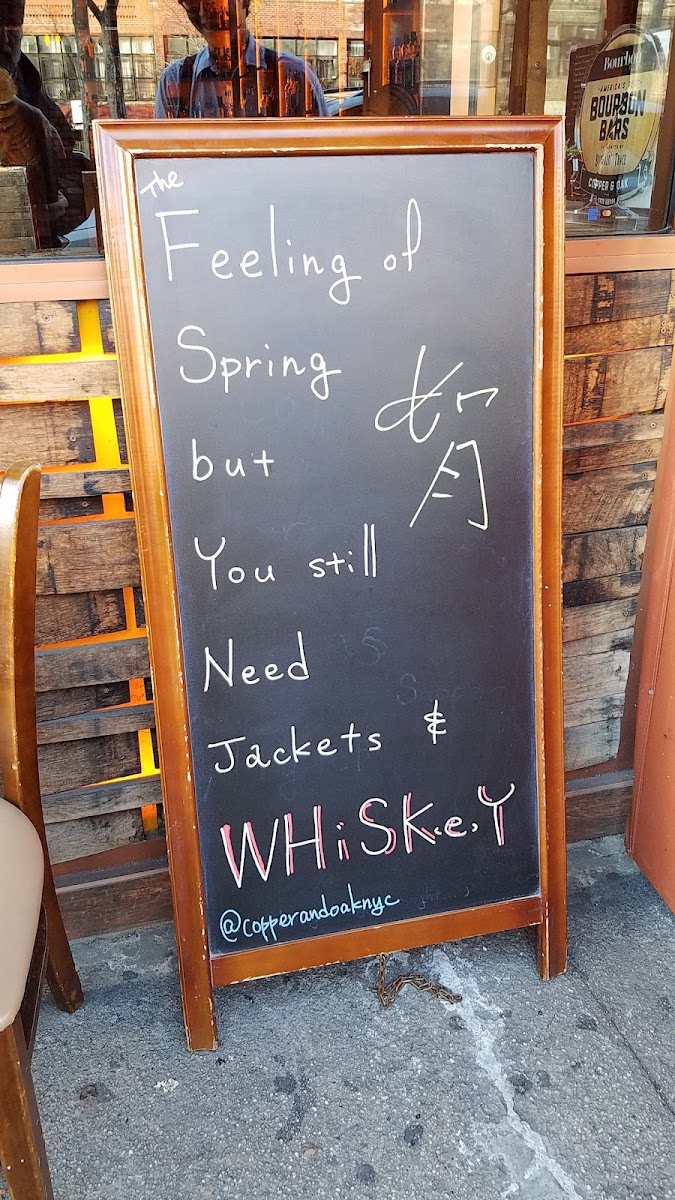 The
Feeling of
Spring
but
You still
Need
Jackets &
WHiSK.e.Y
@copperandoaknyc
Bourbon
AMERICA'S
BOURBON
BARS
COPPER & OAK